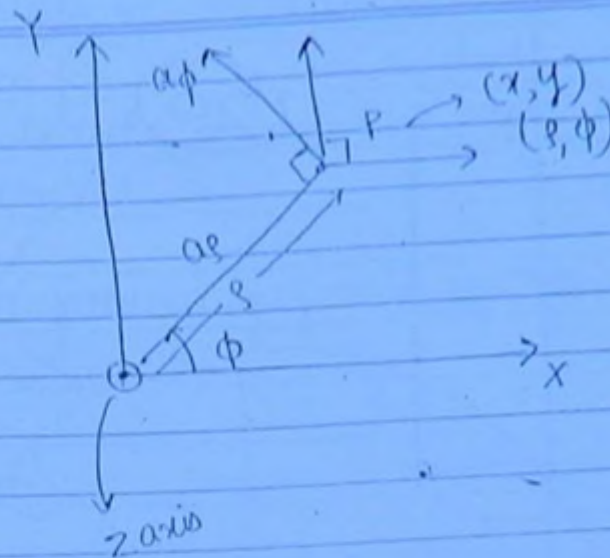 Y
aφ
P
(x,y)
(ρ,φ)
aρ
ρ
φ
X
z axis